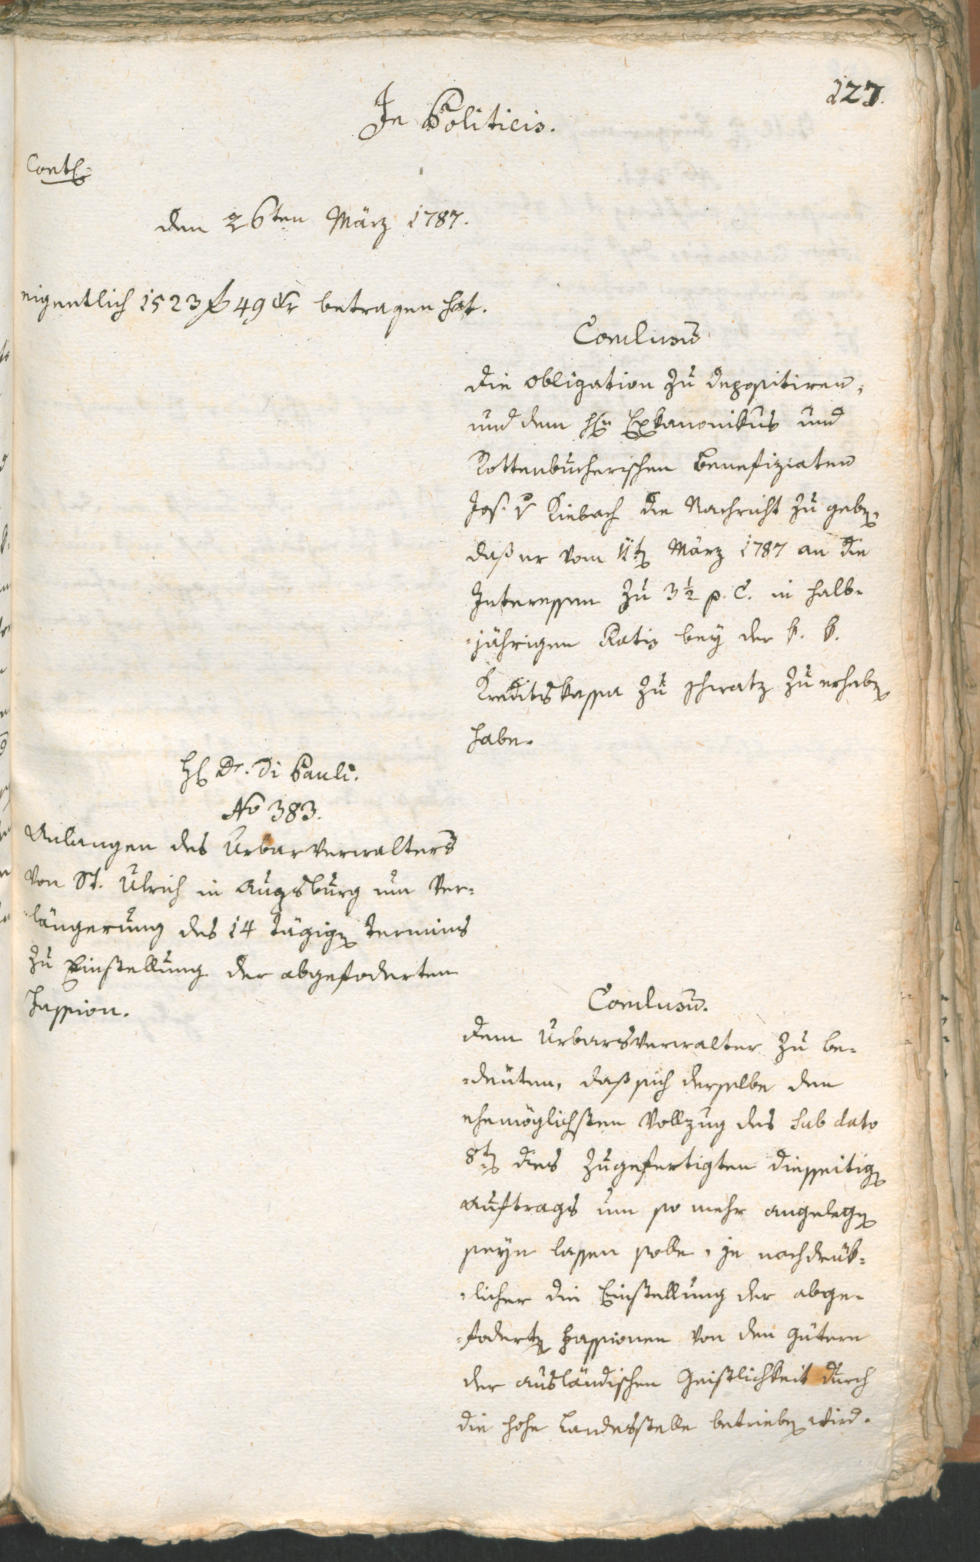 127.
In Politicis.
Contl:
den 26ten März 1787.
eigentlich 1523 f 49 Kr betragen hat.
Conclusũ
die Obligation zu depositiren,
und dem Hℓn Exkanonikus und
Rottenbucherischen Benefiziaten
Jos. v Kiebach die Nachricht zu gebɳ,
daß er vom 11tɳ März 1787 an die
Interessen zu 3½ p. C. in halb-
-jährigen Ratis bey der k. k.
Kreditskassa zu Schwatz zu erhebɳ
habe.
Hℓ Dr. Di Pauli.
No 383.
Anlangen des Urbarverwalters
von St. Ulrich in Augsburg um Ver-
längerung des 14 tägigɳ Termins
zu Einstellung der abgefoderten
Fassion.
Conclusũ.
dem Urbarsverwalter zu be-
-deuten, daß sich derselbe den
ehemöglichsten Vollzug des sub dato
8tɳ dies zugefertigten diesseitigɳ
Auftrags um so mehr angelegɳ
seyn lassen solle, je nachdrük-
-licher die Einstellung der abge-
-fodertɳ Fassionen von den Gütern
der ausländischen Geistlichkeit durch
die hohe Landesstelle betriebɳ wird.